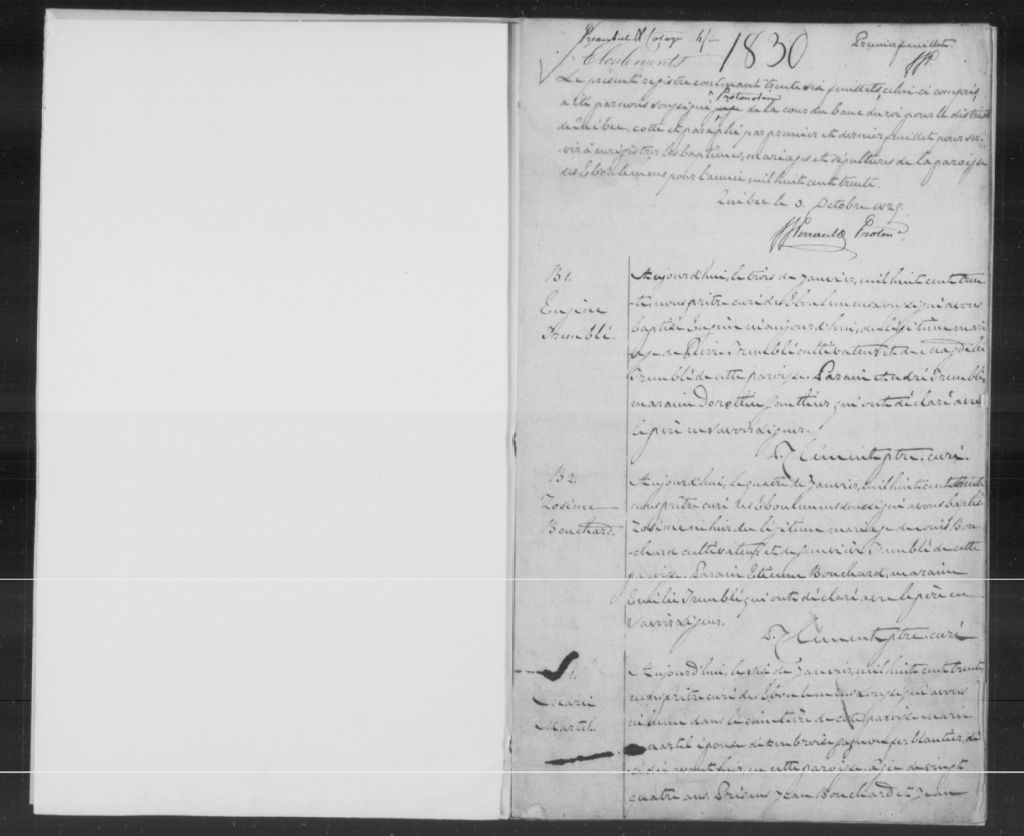 1830
Premier feuillet.
Eboulements
Le présent registre contenant trente six feuillets, celui-ci compris,
a été par nous soussigné Protonotaire de la cour du banc du roi pour le district
de Québec, cotté et paraphé par premier et dernier feuillet pour ser-
vir à enregistrer les baptêmes, mariages et sépultures de la paroisse
des Eboulemens pour l'année mil huit cent trente.
Québec le 3. Octobre 1829.
Perrault Proton.
B 1.
Eugène
Tremblé.
Aujourd'hui, le trois de Janvier, mil huit cent tren-
te, nous prêtre curé des Eboulemens soussigné avons
baptisé Eugène né aujourd'hui, du légitime mari
age de Pierre Tremblé cultivateur et de Magdelei
Tremblé de cette paroisse. Parain André Tremblé,
maraine Dorothée Gauthier qui ont déclaré avec
le père ne savoir signer.
Clément ptre. curé.
B 2.
Zosime
Bouchard.
Aujourd'hui, le quatre de Janvier, mil huit cent trente
nous prêtre curé des Eboulemens soussigné avons baptisé
Zosime né hier du légitime mariage de Louis Bou-
chard cultivateur et de Geneviève Tremblé de cette
paroisse. Parain Etienne Bouchard, maraine
Emilie Tremblé qui ont déclaré avec le père ne
savoir signer.
Clément ptre. curé
S 1.
Marie
Martel.
Aujourd'hui, le six de Janvier, mil huit cent trente
nous prêtre curé des Eboulemens soussigné avons
inhumé dans le cimetière de cette paroisse Marie
Martel épouse d'Ambroise Gagnon ferblantier, dé
cédée avant hier, en cette paroisse. Agée de vingt
quatre ans. Présens Jean Bouchard et Jean